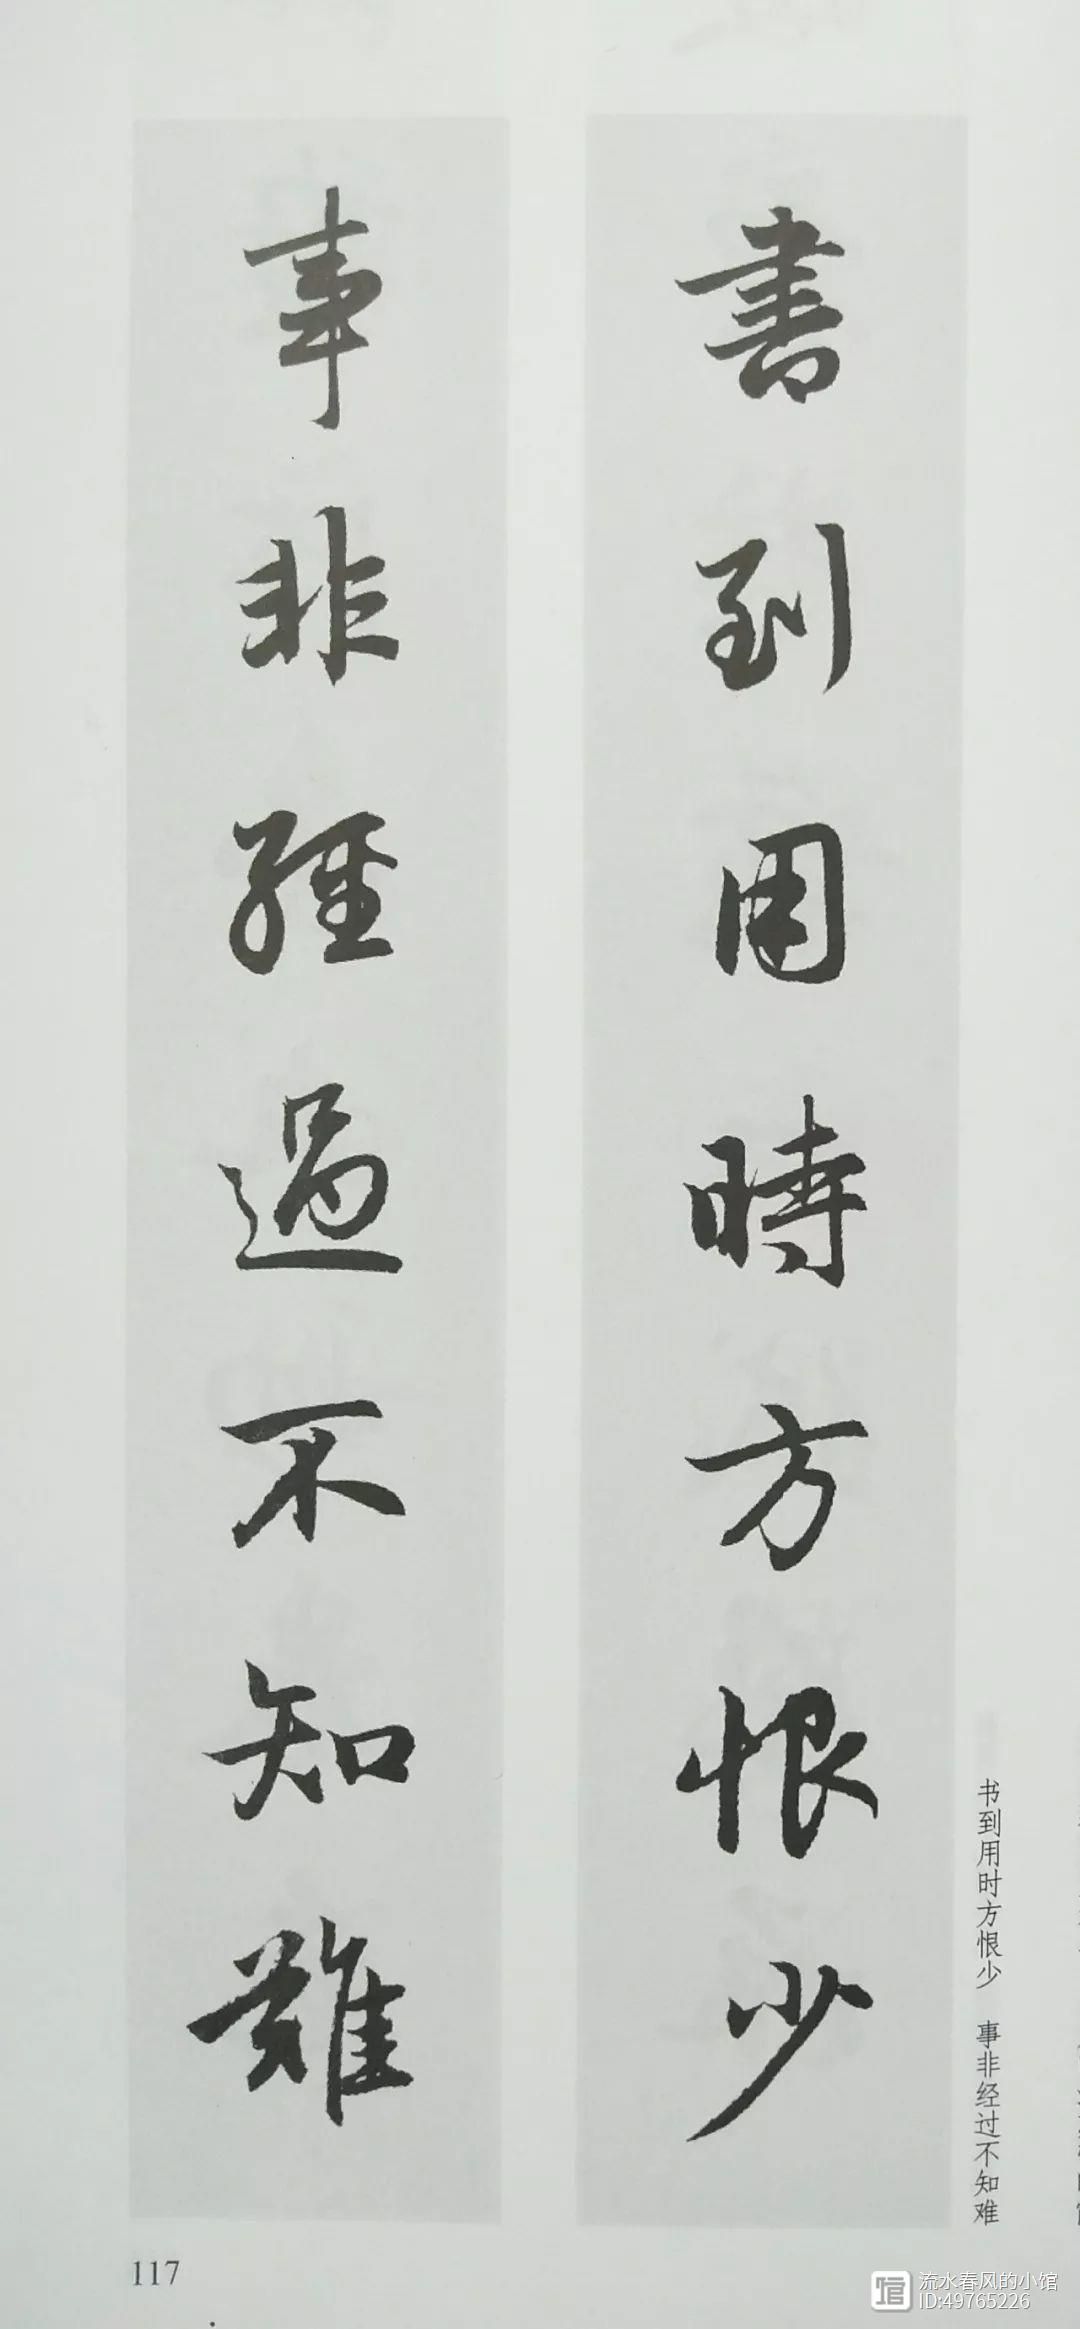 書到用時方恨少
事非經過不知難
书到用时方恨少 事非经过不知难
117
流水春风的小馆
ID:49765226